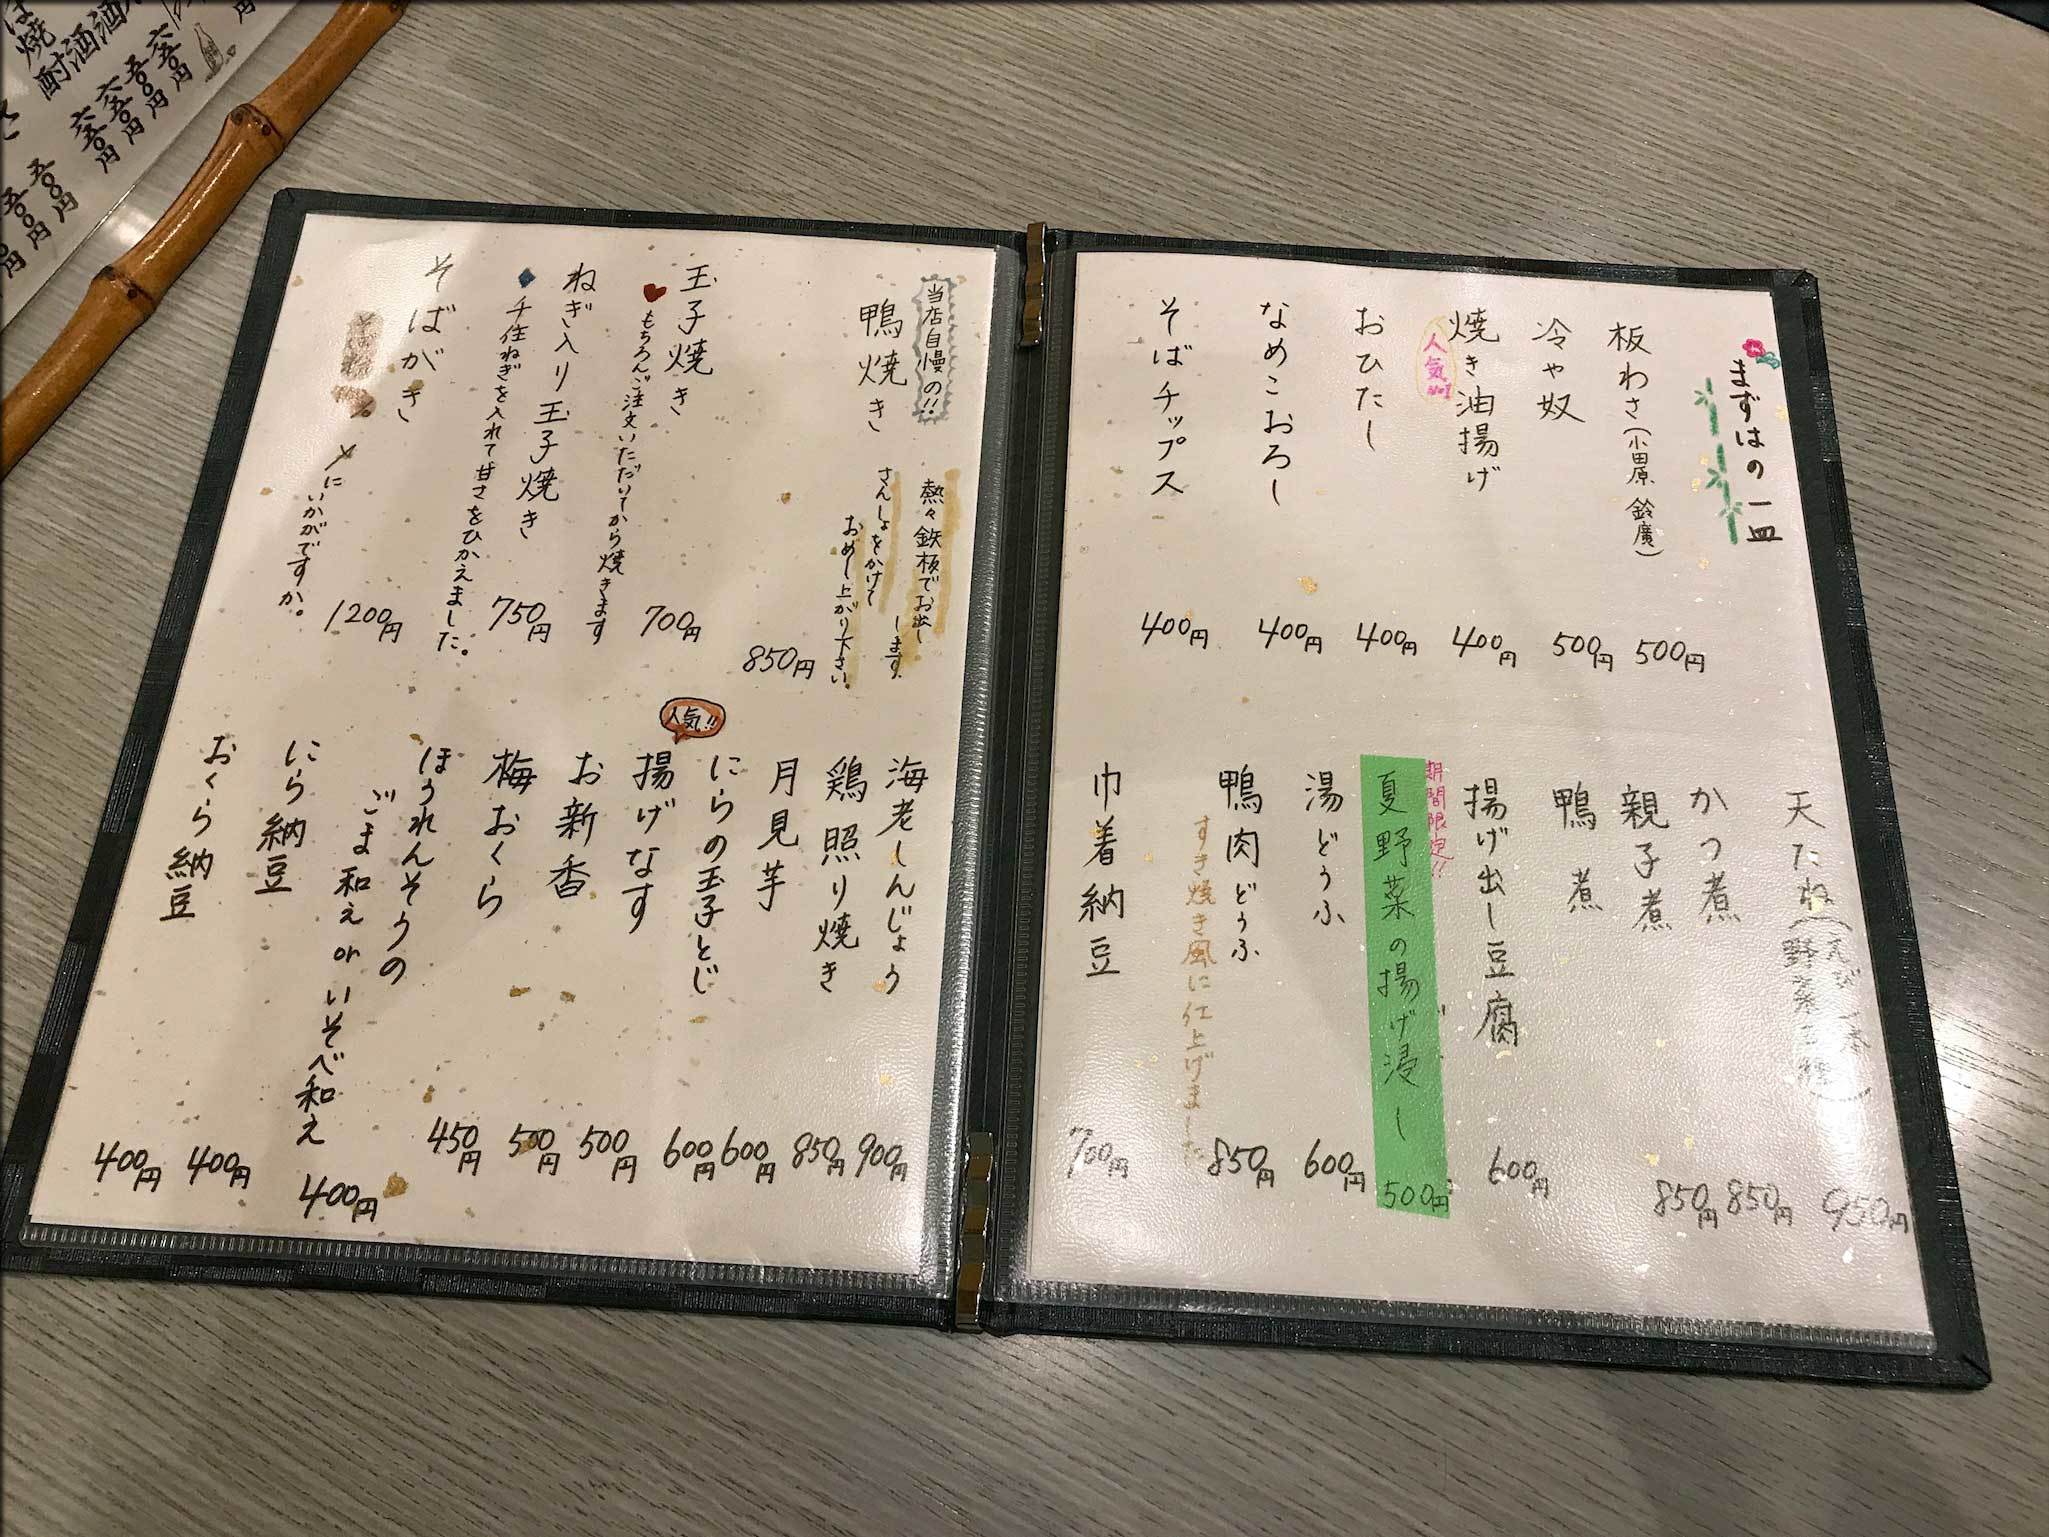 まずはの一皿
板わさ(小田原 鈴廣)
500円
冷や奴
500円
人気No1
焼き油揚げ
400円
おひたし
400円
なめこおろし
400円
そばチップス
400円
天たね(えび一本
野菜三種)
950円
かつ煮
850円
親子煮
850円
鴨煮
揚げ出し豆腐
600円
期間限定!!
夏野菜の揚げ浸し
500円
湯どうふ
600円
鴨肉どうふ
850円
すき焼き風に仕上げました
巾着納豆
700円
当店自慢の!!
鴨焼き
850円
熱々鉄板でお出しします
さんしょをかけて
おめし上がり下さい。
玉子焼き
700円
もちろんご注文いただいてから焼きます
ねぎ入り玉子焼き
750円
千住ねぎを入れて甘さをひかえました。
そばがき
1200円
〆にいかがですか。
海老しんじょう
900円
鶏照り焼き
850円
月見芋
600円
にらの玉子とじ
600円
人気!!
揚げなす
500円
お新香
500円
梅おくら
450円
ほうれんそうの
ごま和え or いそべ和え
400円
にら納豆
400円
おくら納豆
400円
六五〇円
五〇〇円
六五〇円
六五〇円
五〇〇円
五〇〇円